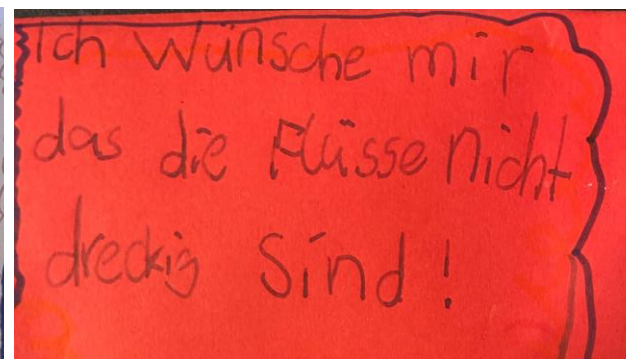 Ich Wünsche mir
das die Flüsse nicht
dreckig Sind!